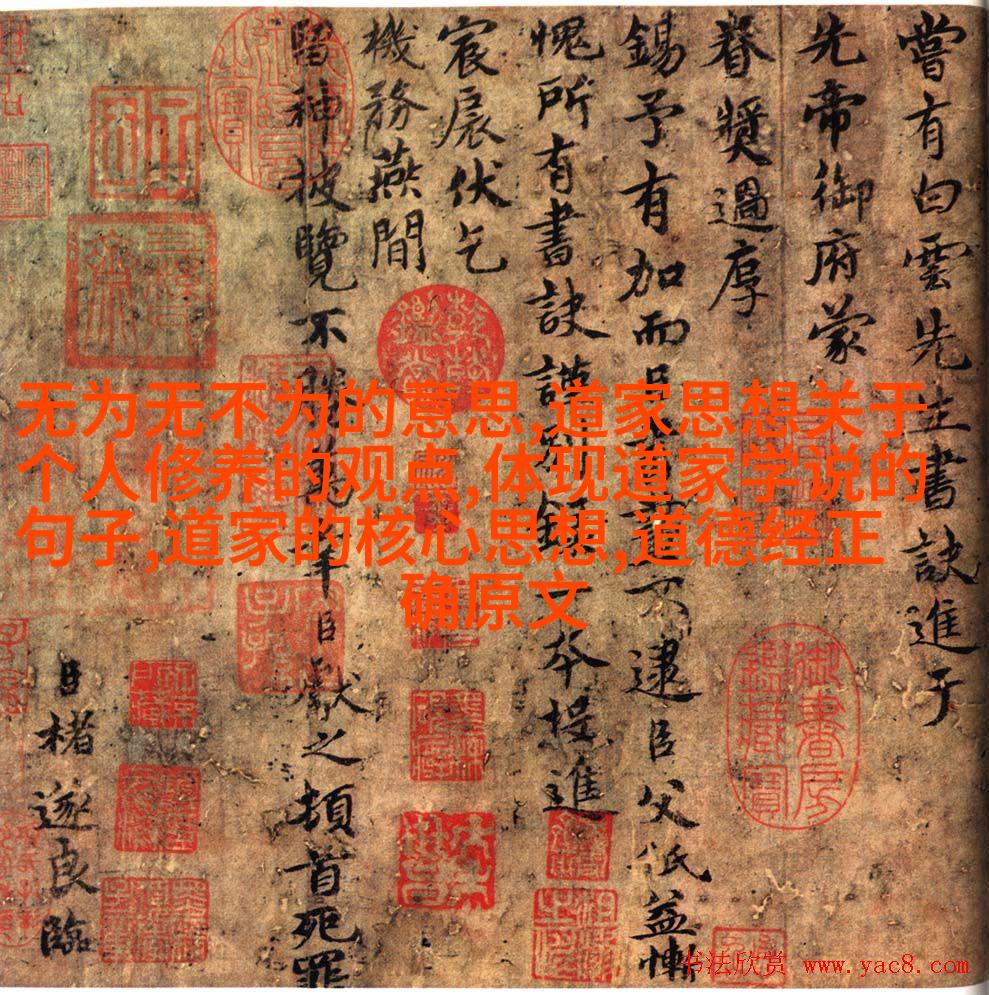 无为无不为的意思,道家思想关于
个人修养的观点,体现道家学说的
句子,道家的核心思想,道德经正
确原文
嘗有白雲先生書訣進于
先帝御府蒙
眷獎過厚
錫予有加而臣書不逮臣父祇益慚
愧所有書訣謹別錄一本投進
宸扆伏乞
機務燕閒
留神披覽不勝萬幸臣獻之頓首死罪
臣楮遂良臨
书法欣赏 www.yac8.com